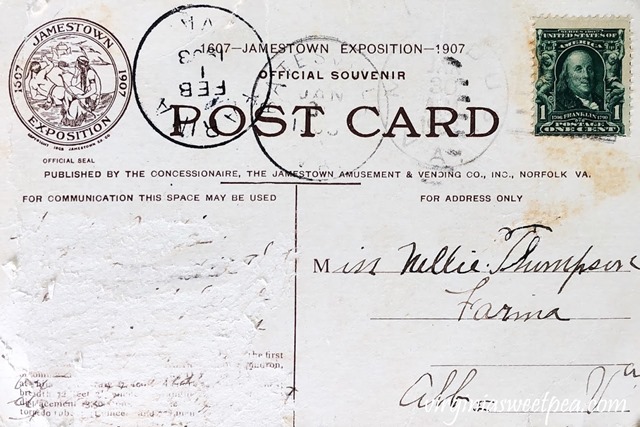 1607—JAMESTOWN EXPOSITION—1907
OFFICIAL SOUVENIR
POST CARD
JAMESTOWN
1607 1907
EXPOSITION
OFFICIAL SEAL
FEB
1
VA
JAN
SERIES 1902
UNITED STATES OF
AMERICA
1 FRANKLIN 1
POSTAGE
ONE CENT
PUBLISHED BY THE CONCESSIONAIRE, THE JAMESTOWN AMUSEMENT & VENDING CO., INC., NORFOLK VA.
FOR COMMUNICATION THIS SPACE MAY BE USED
FOR ADDRESS ONLY
Miss Nellie Thompson
Farina
Alb Va
the first
breadth
displacement
torpedo
virginiasweetpea.com